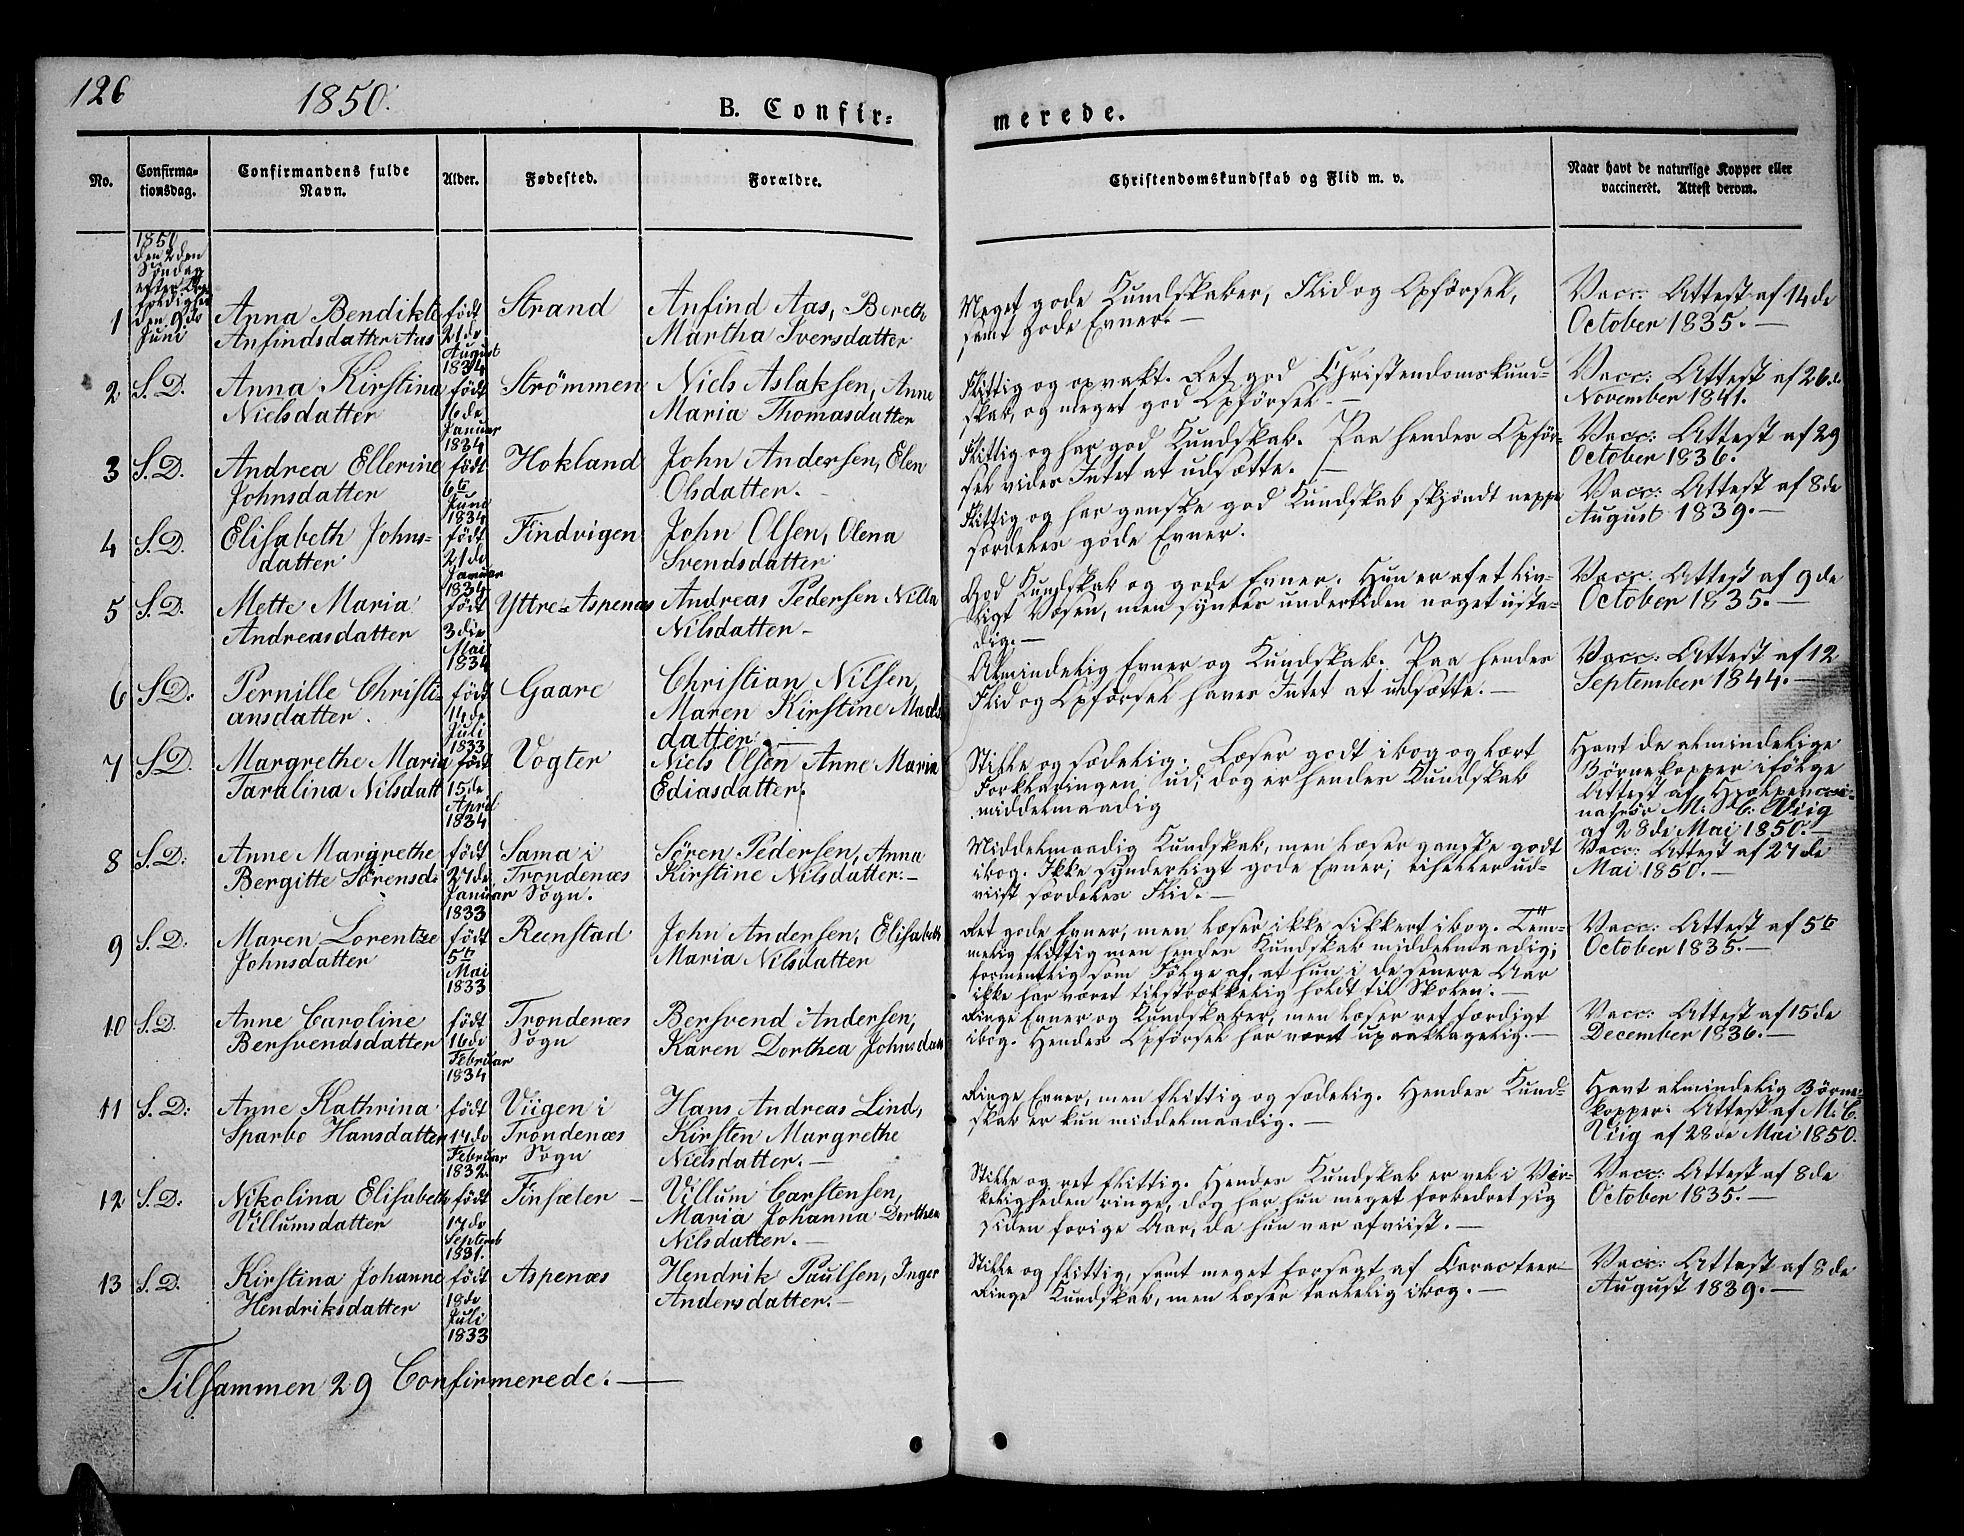 126
1850.
B. Confir-
merede.
No.
Confirma-
tionsdag.
Confirmandens fulde
Navn.
Alder.
Fødested.
Forældre.
Christendomskundskab og Flid m. v.
Naar havt de naturlige Kopper eller
vaccineret. Attest derom.
1850
den 2den
Søndag
efter
den 9de
Juni
1
Anna Bendikte
Anfindsdatter Aas
født
21de
August
1834
Strand
Anfind Aas, Bereth
Martha Iversdatter
Meget gode Kundskaber, Flid og Opførsel,
samt gode Evner.—
Vacc: Attest af 14de
October 1835.—
2
S. D.
Anna Kirstina
Nielsdatter
født
16de
Januar
1834
Strömmen
Niels Aslaksen, Anne
Maria Thomasdatter
Flittig og opvakt. Ret god Christendomskund-
skab, og meget god Opførsel.—
Vacc: Attest af 26de
November 1841.
3
S. D.
Andrea Ellerine
Johnsdatter
født
6te
Juni
1834
Hokland
John Andersen, Elen
Olsdatter.
Flittig og har god Kundskab. Paa hendes Opfør-
sel vides Intet at udsætte.
Vacc: Attest af 29
October 1836.
4
S. D.
Elisabeth Johns-
datter
født
21de
Januar
1834
Findvigen
John Olsen, Olena
Svendsdatter
Flittig og har ganske god Kundskab skjøndt neppe
særdeles gode Evner.
Vacc: Attest af 8de
August 1839.—
5
S. D.
Mette Maria
Andreasdatter
født
3die
Mai
1834
Yttre-Aspenæs
Andreas Pedersen Nilla
Nilsdatter—
God Kundskab og gode Evner. Hun er af et liv-
ligt Væsen, men synes undertiden noget usta-
dig.—
Vacc. Attest af 9de
October 1835.—
6
S. D:
Pernille Christi-
ansdatter.
født
14de
Juli
1833
Gaare
Christian Nilsen,
Maren Kirstine Mads
datter.—
Almindelig Evner og Kundskab. Paa hendes
Flid og Opførsel haves Intet at udsætte.—
Vacc: Attest af 12
September 1844.—
7
S. D.
Margrethe Maria
Taralina Nilsdatt
født
15de
April
1834
Vogter
Niels Olsen Anne Maria
Ediasdatter.
Stille og sædelig. Læser godt i bog og lært
Forklaringen ud; dog er hendes Kundskab
middelmaadig
Havt de almindelige
Børnekopper ifølge
Attest af Hjælpevacci-
nateur M: C: Viig
af 28de Mai 1850.—
8
S. D:
Anne Margrethe
Bergitte Sörensd:
født
27de
Januar
1833
Sama i
Trondenæs
Sogn.
Sören Pedersen, Anna
Kirstine Nilsdatter.—
Middelmaadig Kundskab, men læser ganske godt
i bog. Ikke synderligt gode Evner; ei heller ud-
viist særdeles Flid.—
Vacc: Attest af 27de
Mai 1850.—
9
S. D:
Maren Lorentze
Johnsdatter
født
5te
Mai
1833
Reenstad
John Andersen, Elisabeth
Maria Nilsdatter
Ret gode Evner, men læser ikke sikkert i bog. Tem-
melig flittig men hendes Kundskab middelmaadig;
formentlig som Følge af, at hun i de senere Aar
ikke har været tilstrækkelig holdt til Skolen.—
Vacc: Attest af 5te
October 1835.—
10
S. D.
Anne Caroline
Bersvendsdatter
født
16de
Februar
1834
Trondenæs
Sogn
Bersvend Andersen,
Karen Dorthea Johnsdatt
Ringe Evner og Kundskaber, men læser ret færdigt
i bog. Hendes Opførsel har været upaaklagelig.—
Vacc: Attest af 15de
December 1836.—
11
S. D:
Anne Kathrina
Sparbo Hansdatter
født
17de
Februar
1832
Viigen i
Trondenæs
Sogn
Hans Andreas Lind,
Kirsten Margrethe
Nielsdatter.—
Ringe Evner, men flittig og sædelig. Hendes Kund-
skab er kun middelmaadig.—
Havt almindelig Børne-
kopper: Attest af M: C.
Viig af 28de Mai 1850.
12
S. D:
Nikolina Elisabeth
Villumsdatter
født
17de
Septemb
1831.
Finsæter—
Villum Carstensen,
Maria Johanna Dorthea
Nilsdatter.—
Stille og ret flittig. Hendes Kundskab er vel i Vir-
keligheden ringe, dog har hun meget forbedret sig
siden forige Aar, da hun var afviist.—
Vacc: Attest af 8de
October 1835.—
13
S. D.
Kirstina Johanne
Hendriksdatter
født
18de
Juli
1833
Aspenæs
Hendrik Paulsen, Inger
Andersdatter.—
Stille og flittig, samt meget forsagt af Caracteer
Ringe Kundskab, men læser taalelig i bog.—
Vacc: Attest af 8de
August 1839.—
Tilsammen 29 Confirmerede.—